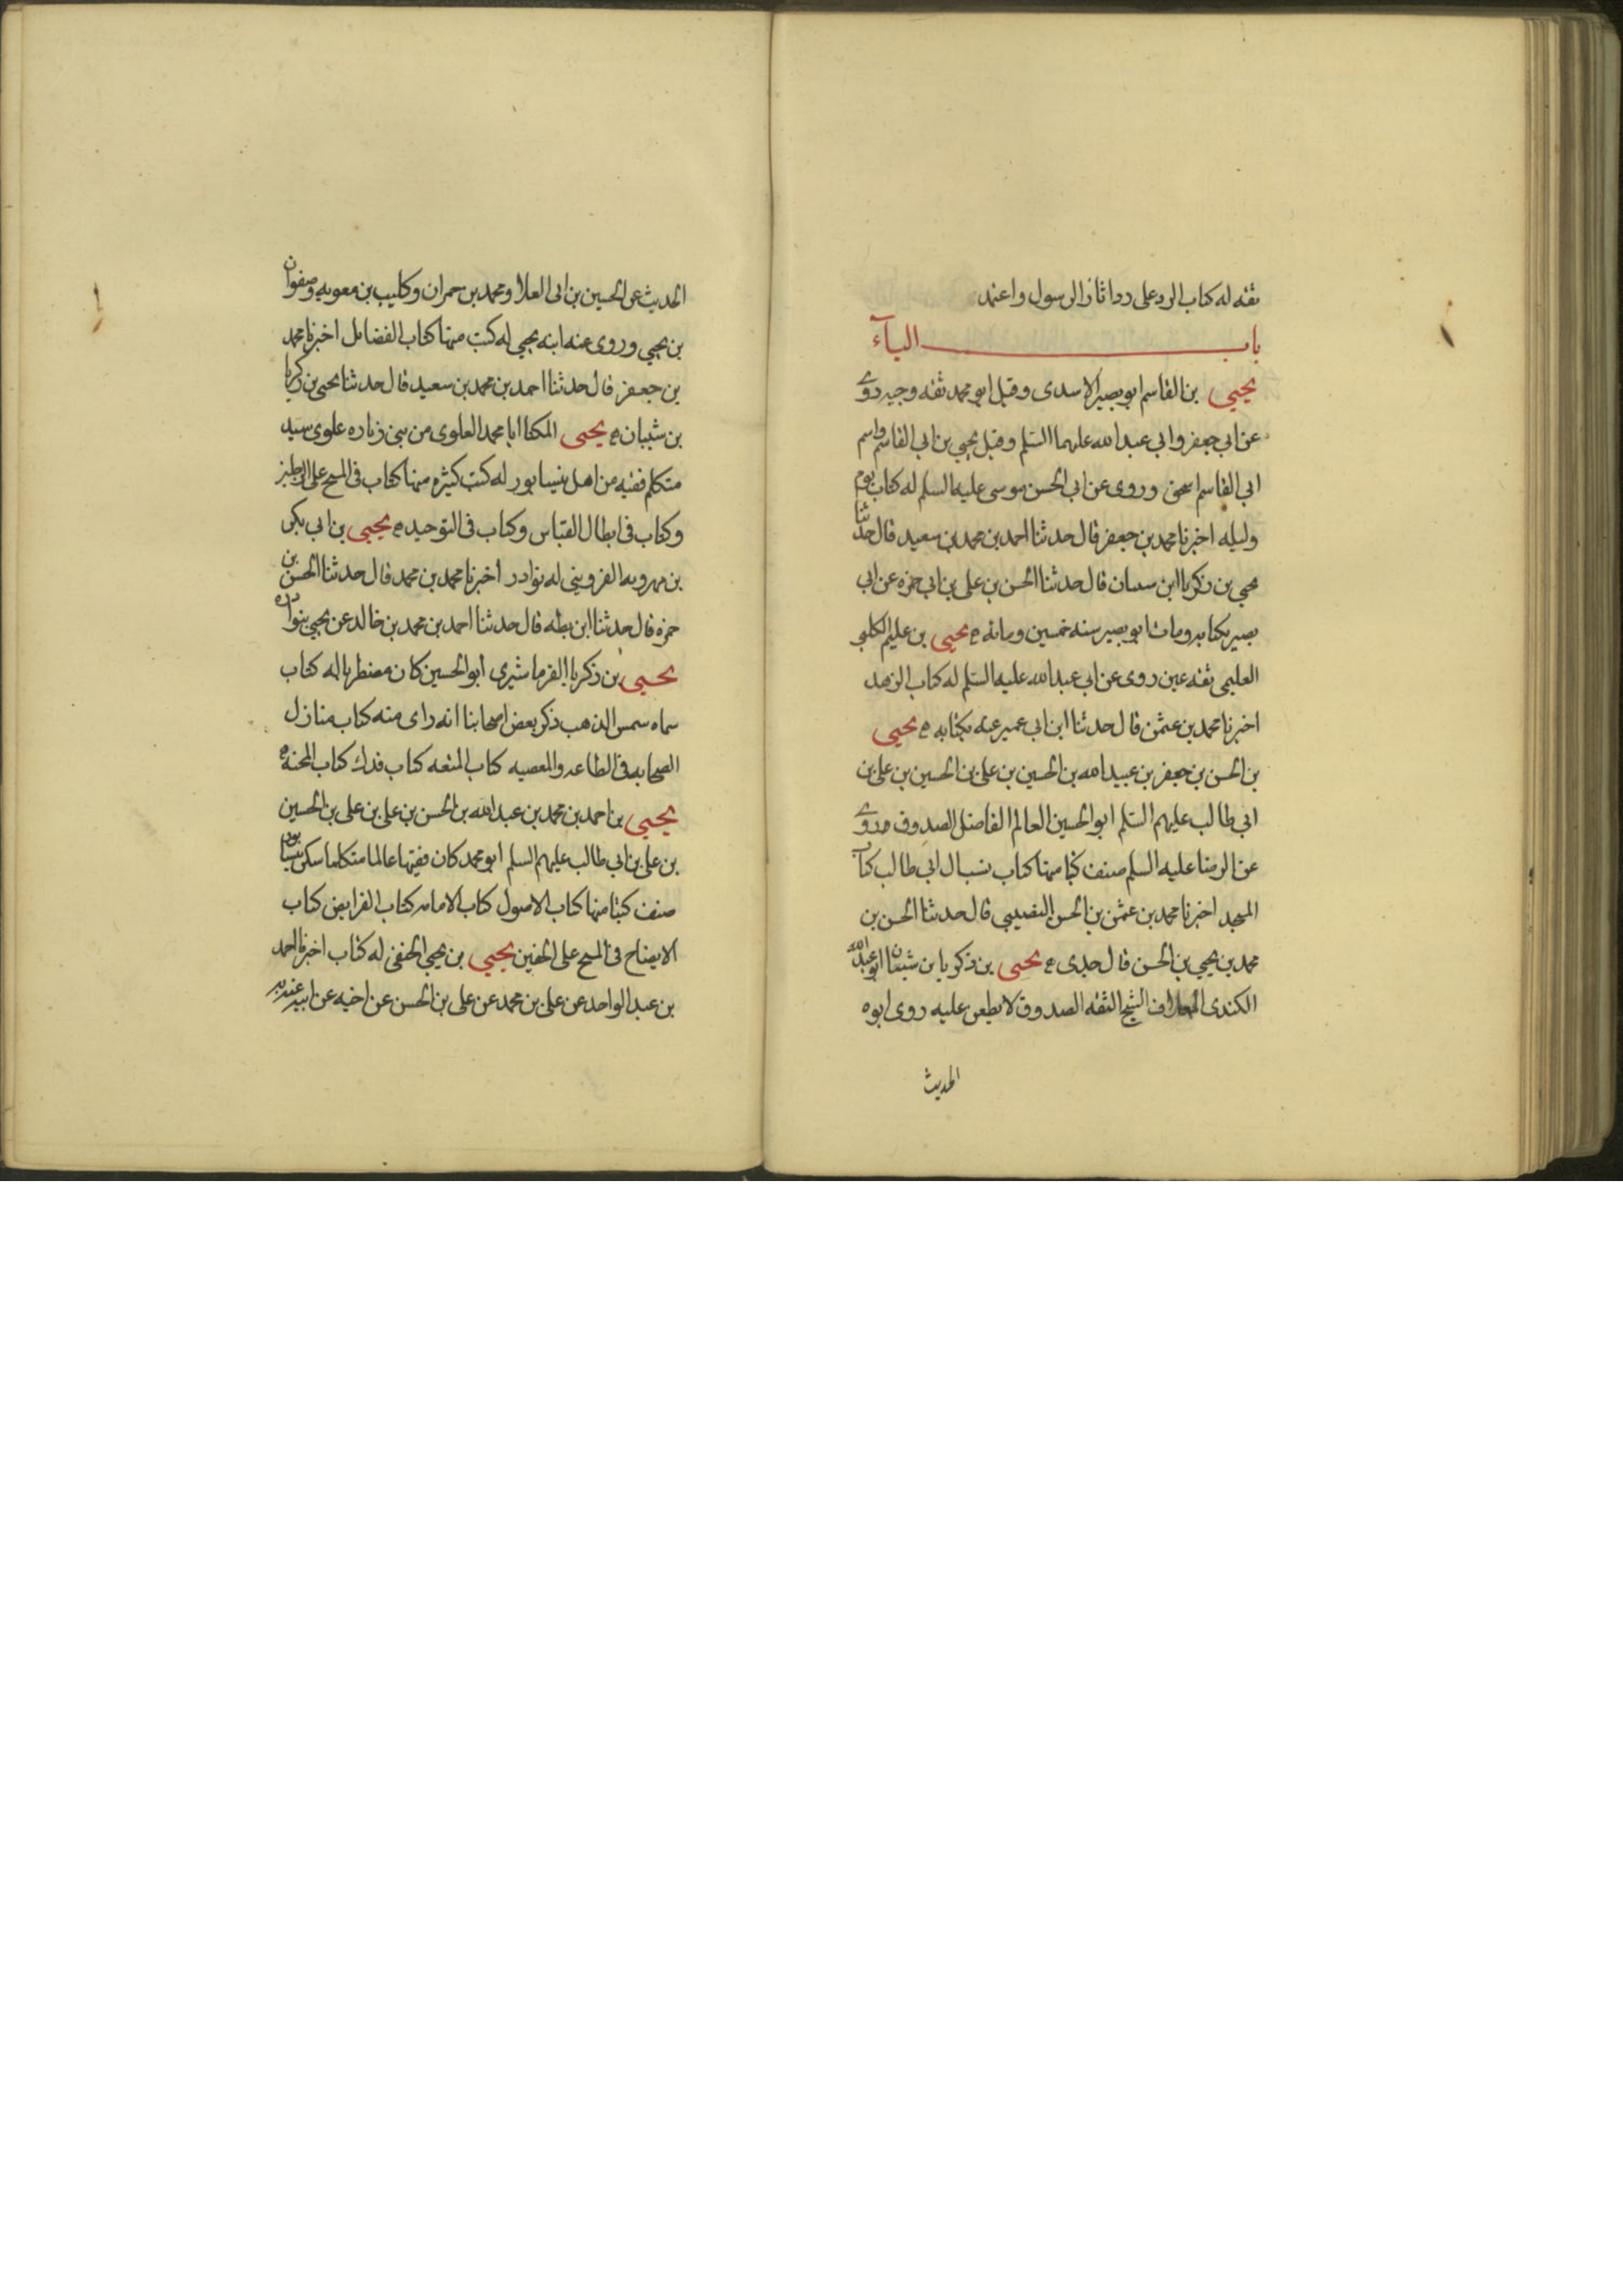 ثقه له كتاب الرد على رد اثار الرسول واعتمد
باب الياء
يحيى بن القاسم ابو بصير الاسدى وقيل ابو محمد ثقه وجيه روى
عن ابى جعفر وابى عبدالله عليهما السلم وقيل يحيى بن ابى القاسم واسم
ابى القاسم اسحق وروى عن ابى الحسن موسى عليه السلم له كتاب يوم
وليله اخبرنا محمد بن جعفر قال حدثنا احمد بن محمد بن سعيد قال حدثنا
يحيى بن زكريا ابن سسان قال حدثنا الحسن بن على بن ابى حمزه عن ابى
بصير بكتابه ومات ابو بصير سنه خمسين ومائه ھ يحيى بن عليم الكلبى
العليمى ثقه عين روى عن ابى عبدالله عليه السلم له كتاب الزهد
اخبرنا محمد بن عثمن قال حدثنا ابن ابى عمير عنه بكتابه ھ يحيى
بن الحسن بن جعفر بن عبيدالله بن الحسين بن على بن الحسين بن على بن
ابى طالب عليهم السلم ابو الحسين العالم الفاضل الصدوق روى
عن الرضا عليه السلم صنف كتبا منها كتاب نسب ال ابى طالب كتاب
المسجد اخبرنا محمد بن عثمن بن الحسن النصيبى قال حدثنا الحسن بن
محمد بن يحيى بن الحسن قال جدى ھ يحيى بن زكريا بن شيبان ابو عبدالله
الكندى العلاف الشيخ الثقه الصدوق لا يطعن عليه روى ابوه
الحديث
الحديث عن الحسين بن ابى العلا ومحمد بن حمران وكليب بن معويه وصفوان
بن يحيى وروى عنه ابنه يحيى له كتب منها كتاب الفضايل اخبرنا محمد
بن جعفر قال حدثنا احمد بن محمد بن سعيد قال حدثنا يحيى بن زكريا
بن شيبان ھ يحيى المكنا ابا محمد العلوى من بنى زباره علوى سيد
متكلم فقيه من اهل نيسابور له كتب كثيره منها كتاب فى المسح على الرجلين
وكتاب فى ابطال القياس وكتاب فى التوحيد ھ يحيى بن ابى بكر
بن مهرويه القزوينى له نوادر اخبرنا محمد بن محمد قال حدثنا الحسن بن
حمزه قال حدثنا ابن بطه قال حدثنا احمد بن محمد بن خالد عن يحيى بنوادره
يحيى بن زكريا الفرماشيرى ابو الحسين كان مضطربا له كتاب
سماه سمس الذهب ذكر بعض اصحابنا انه راى منه كتاب منازل
الصحابه فى الطاعه والمعصيه كتاب المتعه كتاب فدك كتاب المحنه ھ
يحيى بن احمد بن محمد بن عبدالله بن الحسن بن على بن على بن الحسين
بن على بن ابى طالب عليهم السلم ابو محمد كان فقيها عالما متكلما سكن نيسابور
صنف كتبا منها كتاب الاصول كتاب الامامه كتاب الفرايض كتاب
الايضاح فى المسح على الخفين يحيى بن يحيى الحنفى له كتاب اخبرنا احمد
بن عبدالواحد عن على بن محمد عن على بن الحسن عن اخيه عن ابيه عنه به